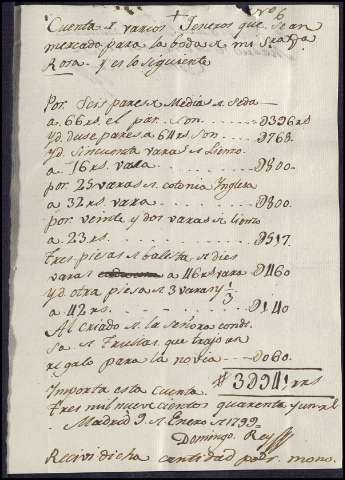 Nº 6
Cuenta de varios Jeneros que se an
mercado para la boda de mi Sra Da
Rosa. Y es lo siguiente
Por Seis pares de Medias de Seda
a 66 rs. el par. Son. D396 rs
Yd. duse pares a 64 rs Son D768.
Yd. Sincuenta varas de Lienso
a 16 rs. vara D800.
por 25 varas de colonia Inglesa
a 32 rs. vara D800.
por veinte y dos varas de lienso
a 23. rs. D517.
Tres piesas de batista de dies
varas a 46 rs vara D460
Yd. otra piesa de 3 varas y 1/3
a 42 rs. D140
Al Criado de la Señora conde
sa de Trullas que trajo un
regalo para la novia D060.
Importa esta Cuenta # 3D941 rs
Tres mil nuevecientos quarenta y un rl
Madrid 9 de Enero de 1799.
Domingo Rey
Recivi dicha cantidad